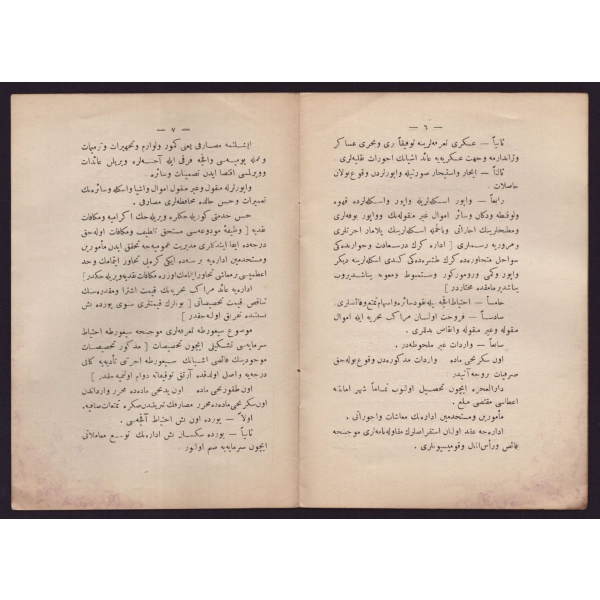 — ٦ —
ثانیاً — عسکری تعرفه‌لرینه توفیقاً بری و بحری عساکر
وژاندارمه وجهت عسکریه‌یه عائد اشیانك اجورات نقلیه‌لری .
ثالثاً — ایجار واستیجار صورتیله واپورلردن وقوعبولان
حاصلات
رابعاً — واپور اسکله‌لریله واپور واسکله‌لرده قهوه
ولوقنطه ودکان وسائر اموال غیر منقوله‌نك وواپور بوفه‌لری
ومطبخلرینك اجاراتی وباجمله اسکله‌لرینك پلامار اجرتلری
ومروریه رسملری [ اداره كرك درسعادت وجوارنده‌کی
سواحل متجاوره‌ده كرك طشره‌ده‌کی کندی اسکله‌لرینه دیکر
واپور وکمی ورومورکور وستیمبوط ومعونه یناشدیروب
یناشدیرمامقده مختاردر ]
خامساً — احتیاط آقچه‌سیله نقود سائره واسهام تمتع وفائضلری .
سادساً — فروخت اولنان مراکب بحریه ایله اموال
منقوله وغیر منقوله وانقاض بدللری .
سابعاً — واردات غیر ملحوظه‌در .
اون سکزنجی ماده واردات مذکوره‌دن وقوع بوله‌جق
صرفیات بروجه آتیدر
دارالعجزه ایچون تحصیل اولنوب تماماً شهر امانتنه
اعطاسی مقتضی مبلغ .
مأمورین ومستخدمین اداره‌نك معاشات واجوراتی .
اداره‌جه عقد اولنان استقراضلرك مقاوله‌نامه‌لری موجبنجه
فائض ورأس‌المال وقومیسیونلری .
— ٧ —
ایشلتمه مصارفی یعنی کمور ولوازم وتجهیزات وترمیمات
وعمله یومیه‌سی واقچه فرقی ایله آجنته‌لره ویریلن عائدات
وویرلمسی اقتضا ایدن تضمینات وسائره .
واپورلرله منقول وغیر منقول اموال واشیا واسکله وسائره‌نك
تعمیرات وحسن حالده محافظه‌لری مصارفی .
حسن خدمتی کوریلنلره ویریله‌جك اکرامیه ومکافات
نقدیه [ وظیفهٔ مودوعه‌سی مستحق تلطیف ومکافات اوله‌جق
درجه‌ده ایفا ایتدکلری مدیریت عمومیه‌جه تحقق ایدن مأمورین
ومستخدمین اداره‌یه بر سنه‌ده ایکی کره‌یی تجاوز ایتمامك وحد
اعظمیسی برمعاشی تجاوز ایتمامك اوزره مکافات نقدیه ویریله‌جکدر ]
اداره‌یه عائد مراکب بحریه‌نك قیمت اشترا ومقدره‌سنك
تناقص قیمت تخصیصاتی [ بونلرك قیمتلری سنوی یوزده بش
نسبتنده تفریق اوله‌جقدر ]
موضوع سیغورطه تعرفه‌لری موجبنجه سیغورطه احتیاط
سرمایه‌سی تشکیلی ایچون تخصیصات [ مذکور تخصیصات
موجودینك فائضی اشیانك سیغورطه اجرتی تأدیه‌یه کافی
درجه‌یه واصل اولدقده آرتق توقیفاته دوام اولنمیه‌جقدر ]
اون طقوزنجی ماده اون یدنجی ماده‌ده محرر وارداتدن
اون سکزنجی ماده‌ده محرر مصارفك تنزیلندن صکره تمتعات صافیه‌نك
اولاً — یوزده اون بش احتیاط آقچه‌سی .
ثانیاً — یوزده سکسان بش اداره‌نك توسیع معاملاتی
ایچون سرمایه‌یه ضم اولنور